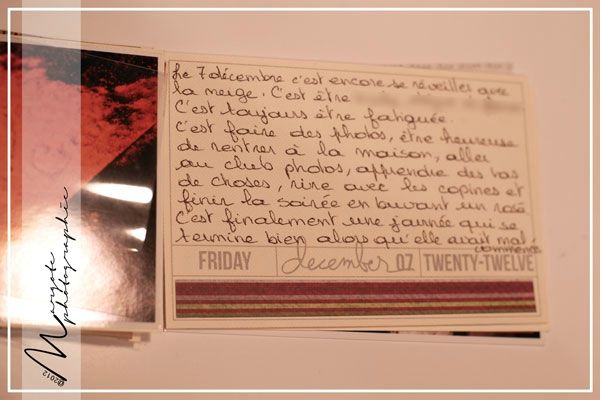 Le 7 décembre c'est encore se réveiller avec
la neige. C'est être
C'est toujours être fatiguée.
C'est faire des photos, être heureuse
de rentrer à la maison, aller
au club photos, apprendre des tas
de choses, rire avec les copines et
finir la soirée en buvant un rosé.
C'est finalement une journée qui se
termine bien alors qu'elle avait mal
commencé
FRIDAY december 07 TWENTY-TWELVE
photographie
©2012